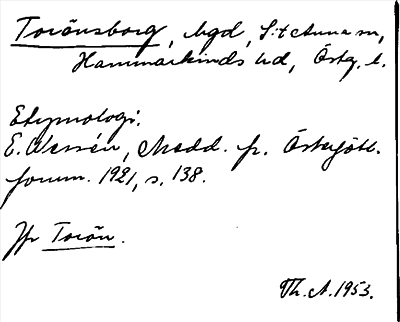 Torönsborg, bgd, S:t Anna sn,
Hammarkinds hd, Östg. l.
Etymologi.
E. Wessén, Medd. fr. Östergötl.
fornm. 1921, s. 138.
Jfr Torön.
Th. A. 1953.